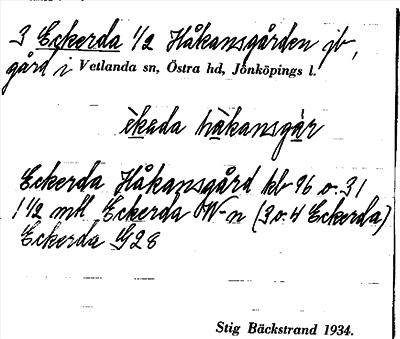 3 Eckerda 1/2 Håkansgården jb,
gård i Vetlanda sn, Östra hd, Jönköpings l.
èkada hàkansgàr
Eckerda Håkansgård kb 96 o. 31
1 1/2 mtl Eckerda W-n (3 o. 4 Eckerda)
Eckerda G28
Stig Bäckstrand 1934.